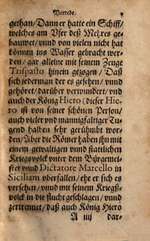 Vorrede.
gethan / Dann er hatte ein Schiff /
welches am Vser deß Meeres ge-
hauwet / vnnd von vielen nicht hat
können ins Wasser gebracht wer-
den / gar alleine mit seinem Zeuge
Trispasto hinein gezogen / Daß
sich jederman der es gesehen / vnnd
gehöret / darüber verwundert / vnd
auch der König Hiero (dieser Hie-
ro ist von seiner schönen Person /
auch vieler vnd mannigfaltiger Tu-
gend halben sehr gerühmbt wor-
den / Vber die Römer haben jhn mit
einem gewaltigen vnnd stattlichen
Kriegsvolck vnter dem Bürgemei-
ster vnd Dictatore Marcello in
Sicilien vberfallen / ehe er sich es
versehen / vnnd mit seinem Kriegß-
volck in die flucht geschlagen / vnnd
zertrennet / daß auch König Hiero
A iiij
dar-